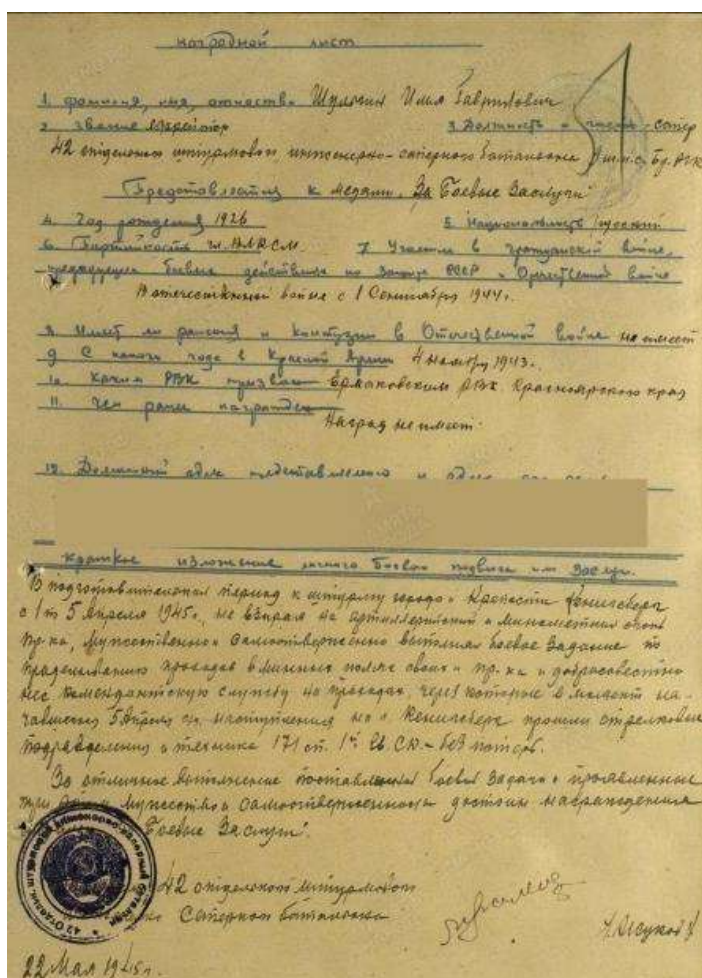 Наградной лист
1. Фамилия, имя, отчество Шулогин Илья Гаврилович
2. Звание Ефрейтор 3. Должность и часть Сапер
42 отдельного штурмового инженерно-саперного батальона
Представляется к медали „За Боевые Заслуги"
4. Год рождения 1926 5. Национальность русский
6. Партийность чл. ВЛКСМ 7. Участие в гражданской войне,
последующих боевых действиях по защите СССР и Отечественной войне
В отечественной войне с 1 Сентября 1944 г.
8. Имеет ли ранения и контузии в Отечественной войне не имеет
9. С какого года в Красной Армии 4 ноября 1943 г.
10. Каким РВК призван Ермаковским РВК Красноярского края
11. Чем ранее награжден
Наград не имеет.
12. Домашний адрес представляемого и адрес
Краткое изложение личного боевого подвига или заслуг.
В подготовительный период к штурму города и Крепости Кенигсберг
с 1 по 5 Апреля 1945 г., не взирая на артиллерийский и минометный огонь
пр-ка, мужественно и самоотверженно выполнял боевое задание по
проделыванию проходов в минных полях своих и пр-ка и добросовестно
нес комендантскую службу на проходах, через которые в момент на-
чавшегося 5 Апреля наступления на г. Кенигсберг прошли стрелковые
подразделения и техника 171 сп. 1й Гв. СК. - без потерь.
За отличное выполнение поставленной боевой задачи и проявленные
при этом мужество и самоотверженность достоин награждения
Боевые Заслуги".
42 отдельного штурмового
Саперного батальона
22 Мая 1945 г.